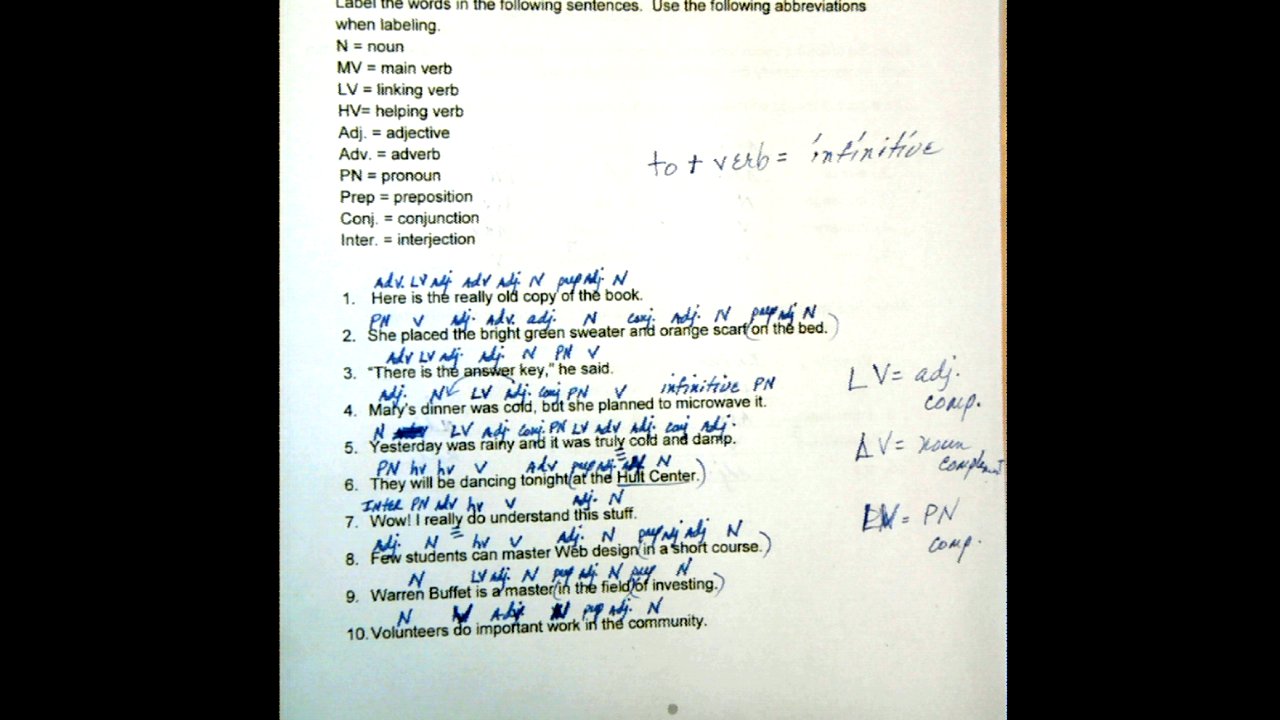 Label the words in the following sentences. Use the following abbreviations
when labeling.
N = noun
MV = main verb
LV = linking verb
HV= helping verb
Adj. = adjective
Adv. = adverb
to + verb = infinitive
PN = pronoun
Prep = preposition
Conj. = conjunction
Inter. = interjection
Adv. LV Adj. Adv Adj. N prep Adj. N
1. Here is the really old copy of the book.
PN V Adj. Adv. adj. N conj. Adj. N prep adj N
2. She placed the bright green sweater and orange scarf (on the bed.)
Adv LV Adj. Adj. N PN V
3. “There is the answer key,” he said.
Adj. N LV Adj. conj PN V infinitive PN
4. Mary's dinner was cold, but she planned to microwave it.
LV = adj.
comp.
N LV Adj conj. PN LV Adv Adj. conj Adj.
5. Yesterday was rainy and it was truly cold and damp.
LV = noun
complement
PN hv hv V Adv prep adj. N
6. They will be dancing tonight (at the Hult Center.)
Inter PN adv hv V Adj. N
7. Wow! I really do understand this stuff.
LV = PN
comp.
Adj. N hv V Adj. N prep adj Adj N
8. Few students can master Web design (in a short course.)
N LV adj. N prep adj N prep N
9. Warren Buffet is a master (in the field)(of investing.)
N V Adj. N prep Adj. N
10. Volunteers do important work in the community.